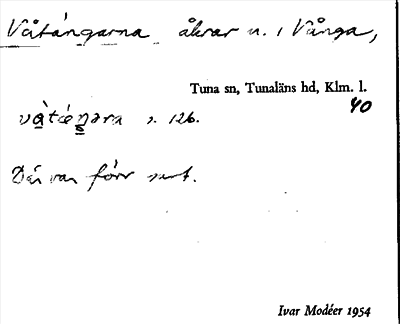 Våtängarna åkrar u. i Vånga,
Tuna sn, Tunaläns hd, Klm. l.
40
s. 126.
Där var förr surt.
Ivar Modéer 1954